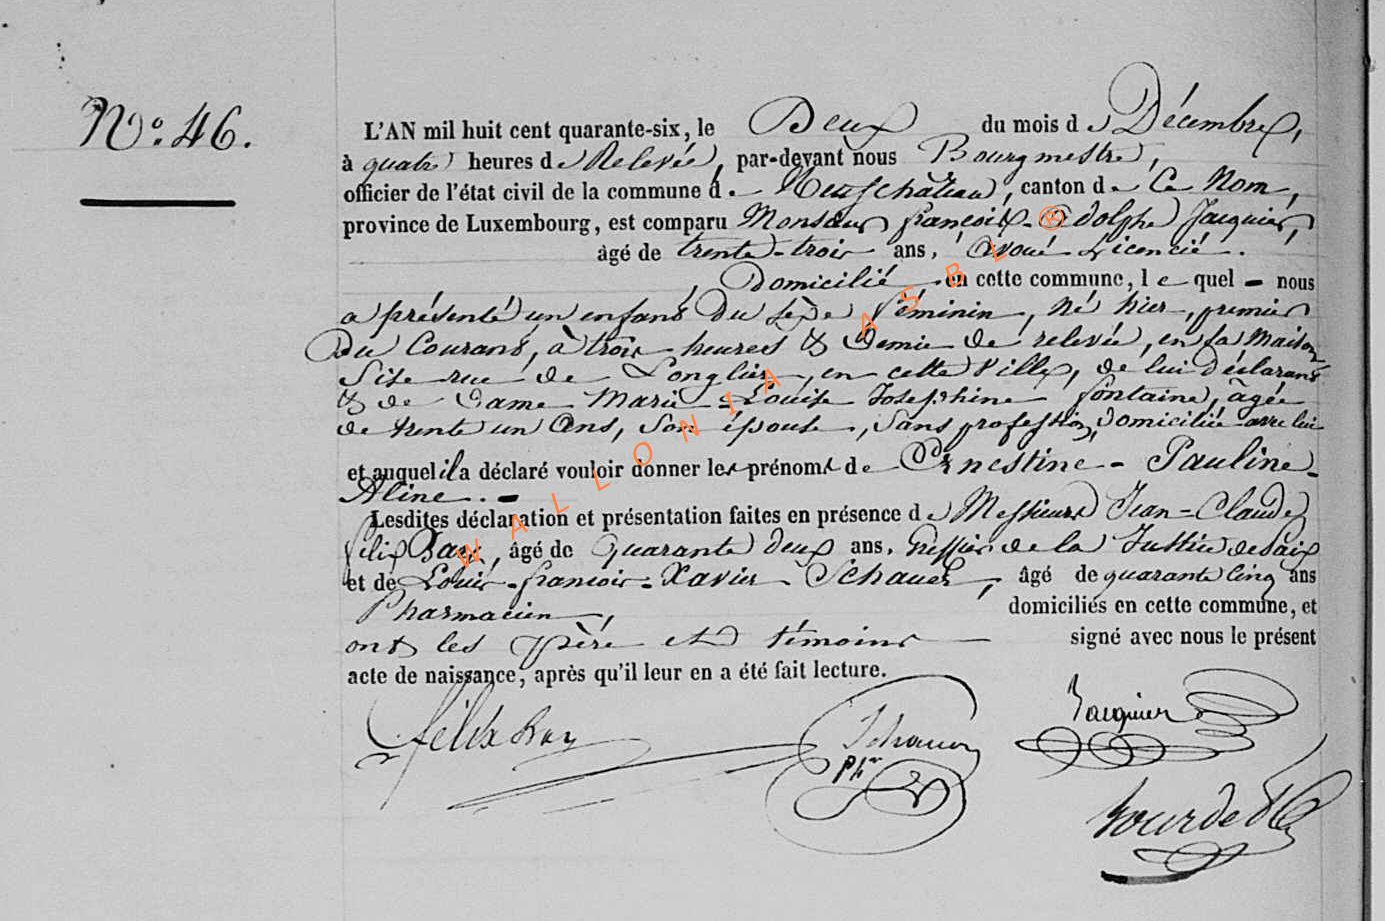 No. 46.
L'AN mil huit cent quarante-six, le Deux du mois de Décembre,
à quatre heures de Relevée, par-devant nous Bourgmestre,
officier de l'état civil de la commune de Neufchâteau, canton de Ce Nom,
province de Luxembourg, est comparu Monsieur françois-Adolphe Jacquier,
âgé de trente-trois ans, Avoué Licencié.
Domicilié en cette commune, lequel nous
a présenté un enfant du sexe féminin, né hier, premier
du Courant, à trois heures et demie de relevée, en sa maison
Sise rue de Longlier, en cette Ville, de lui déclarant
et de Dame Marie-Louise Josephine fontaine, âgée
de trente un Ans, son épouse, sans profession, domiciliée avec lui
et auquel il a déclaré vouloir donner les prénoms de Ernestine-Pauline-
Aline.
Lesdites déclaration et présentation faites en présence de Messieurs Jean-Claude
félix, âgé de Quarante deux ans, Greffier de la Justice de Paix
et de Louis-françois-Xavier Schauer, âgé de quarante cinq ans
Pharmacien, domiciliés en cette commune, et
ont les père et témoins signé avec nous le présent
acte de naissance, après qu'il leur en a été fait lecture.
félix
Jacquier
Schauer
Phen
WALLONIA ASBL ®